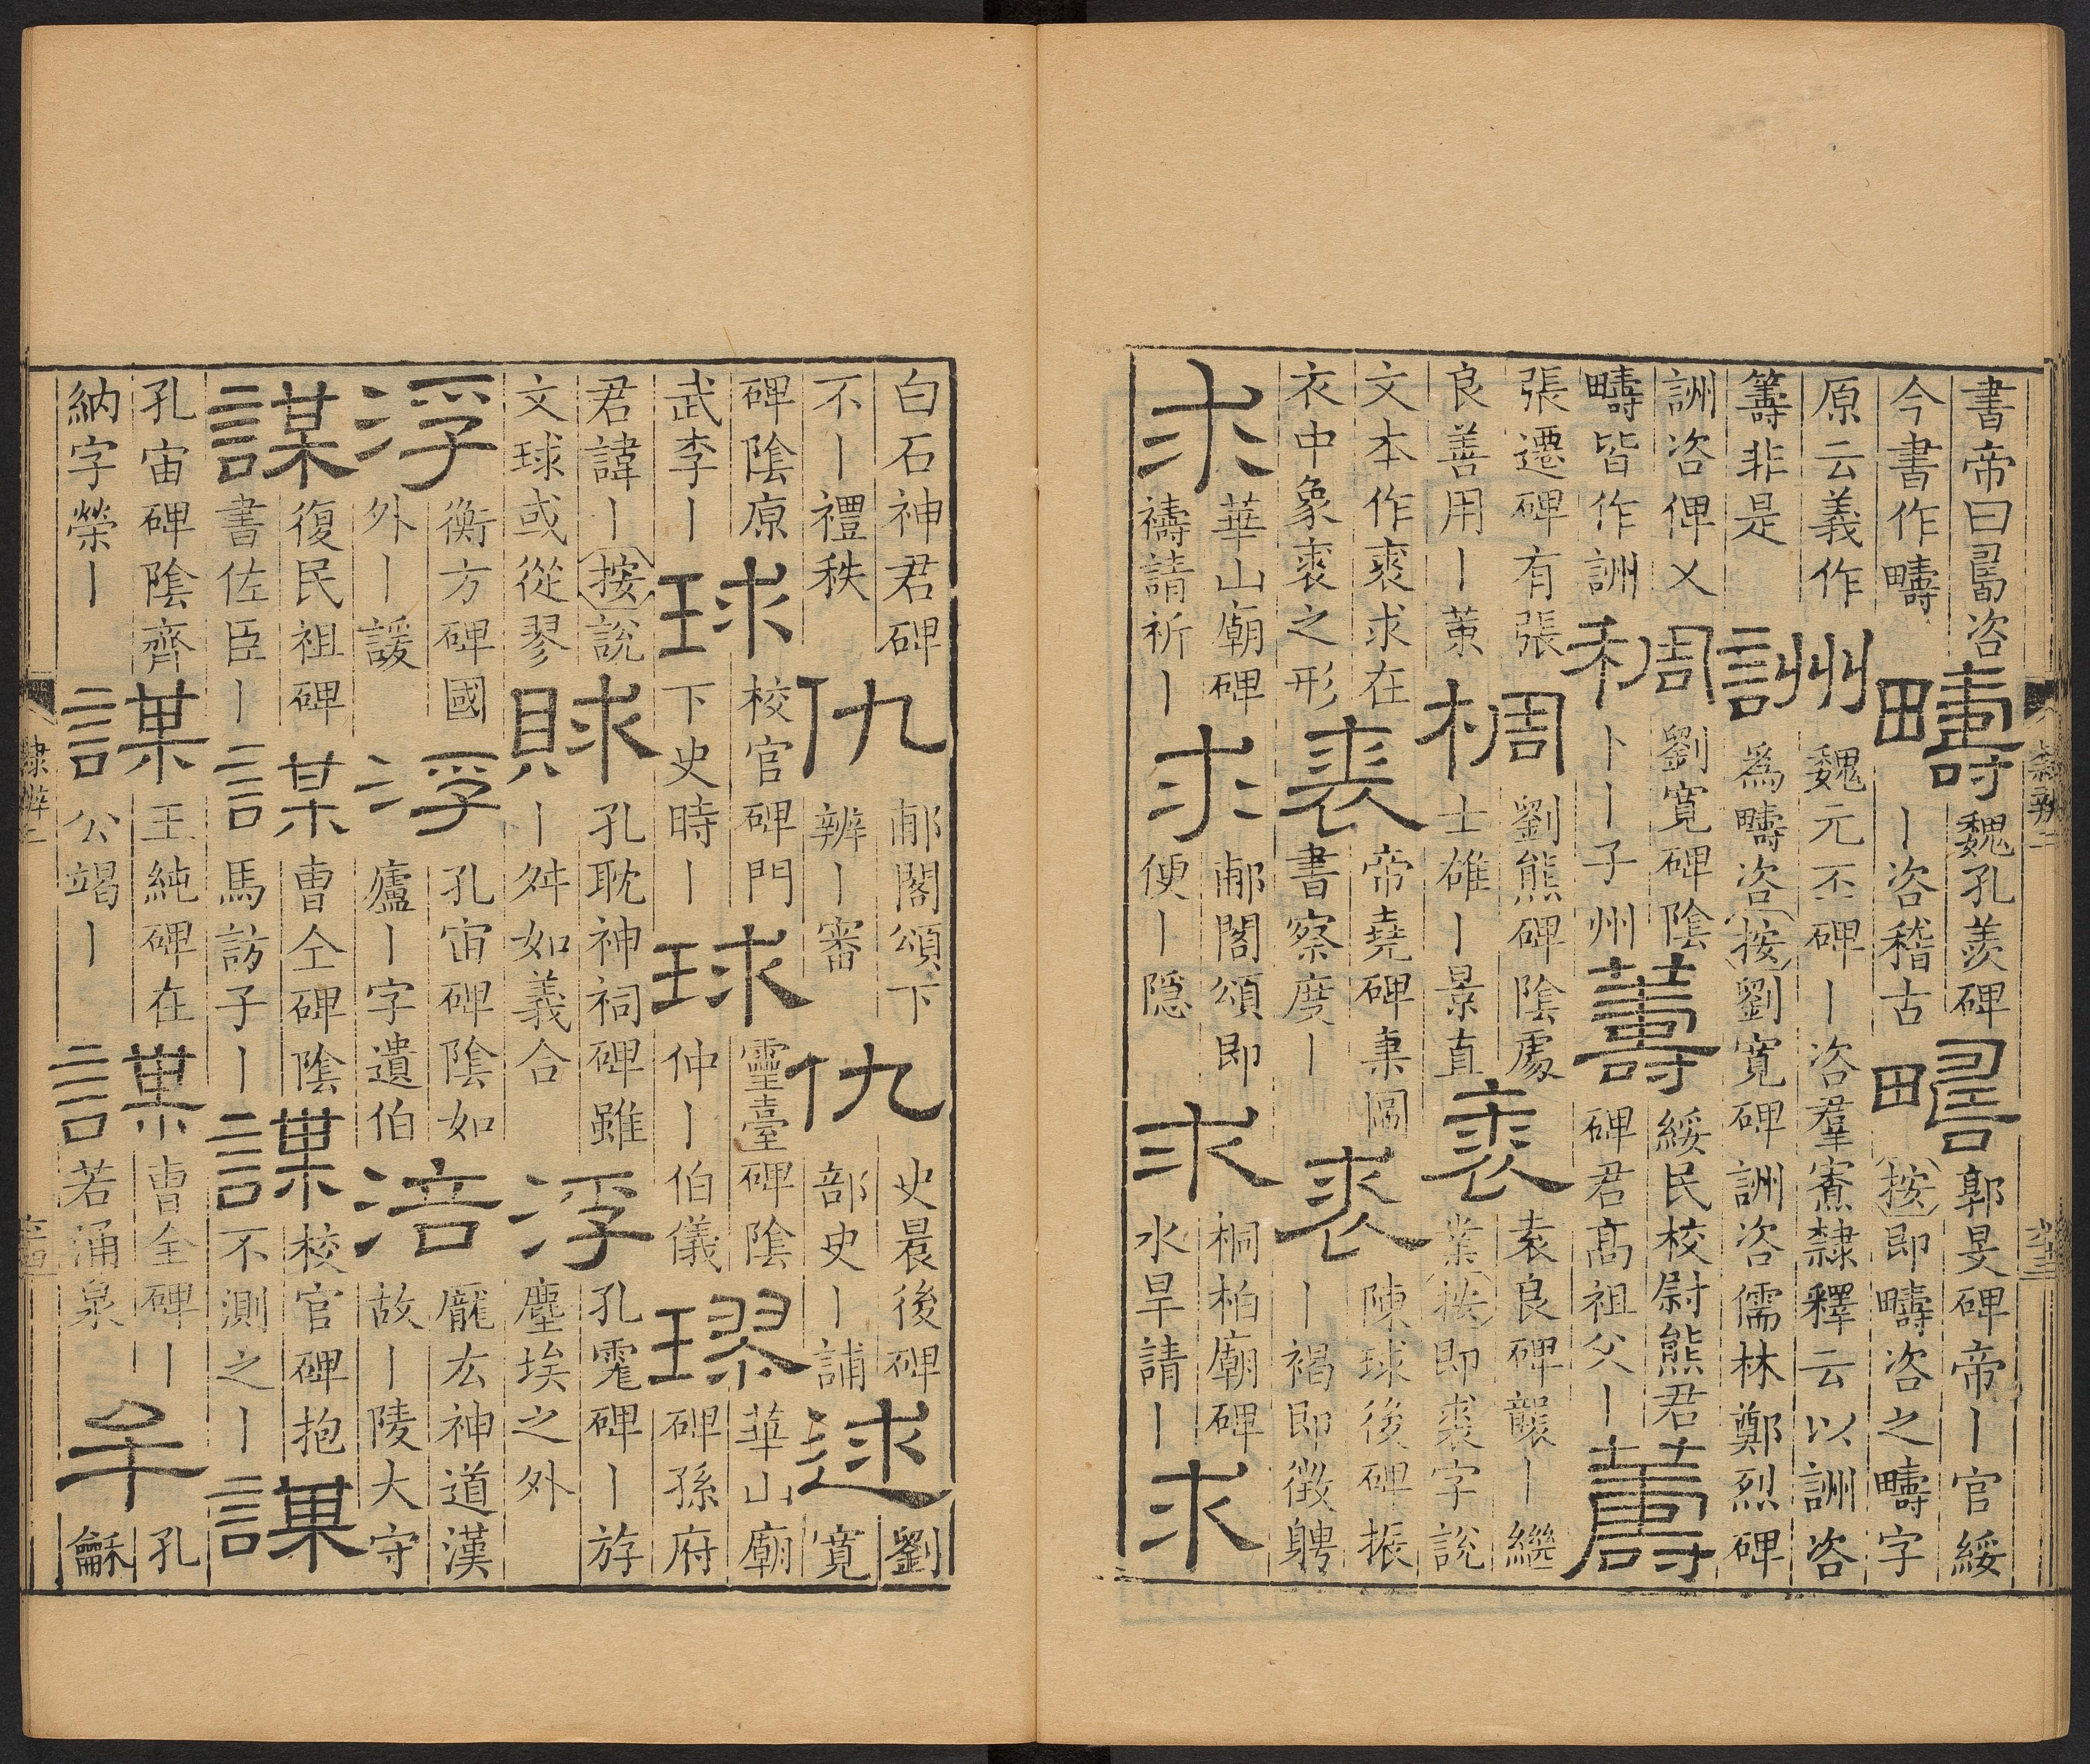 書帝曰𠷎咨今書作疇 疇 魏孔羨碑丨咨稽古 𤲮 郭旻碑帝丨官綏按即疇咨之疇字
原云義作籌非是 詶 魏元丕碑丨咨羣寮隸釋云以詶咨為疇咨按劉寬碑詶咨儒林鄭烈碑
詶咨俾乂疇皆作詶 稠 劉寬碑陰卜丨子州 燾 綏民校尉熊君碑君高祖父丨 燾
張遷碑有張良善用丨䇿 椆 劉熊碑陰處士雄丨景直 裘 袁良碑龔丨繼業按即裘字說
文本作裘求在衣中象裘之形 裘 帝堯碑秉圖書察度丨 裘 陳球後碑振丨褐即徵聘
求 華山廟碑禱請祈丨 求 郙閣頌即便丨隱 求 桐柏廟碑水旱請丨 求
隸辨二
白石神君碑不丨禮秩 仇 郙閣頌下辨丨審 仇 史晨後碑部史丨誧 逑 劉寬
碑陰原武李丨 球 校官碑門下史時丨 球 靈臺碑陰仲丨伯儀 璆 華山廟碑孫府
君諱丨按說文球或從翏 賕 孔耽神祠碑雖丨舛如義合 浮 孔霓碑丨游塵埃之外
浮 衡方碑國外丨諼 浮 孔宙碑陰如廬丨字遺伯 涪 龐厷神道漢故丨陵大守
謀 復民祖碑書佐臣丨 謀 曹仝碑陰馬訪子丨 謀 校官碑抱不測之丨 謀
孔宙碑陰齊納字榮丨 謀 王純碑在公竭丨 謀 曹全碑丨若涌泉 牟 孔龢
隸辨二